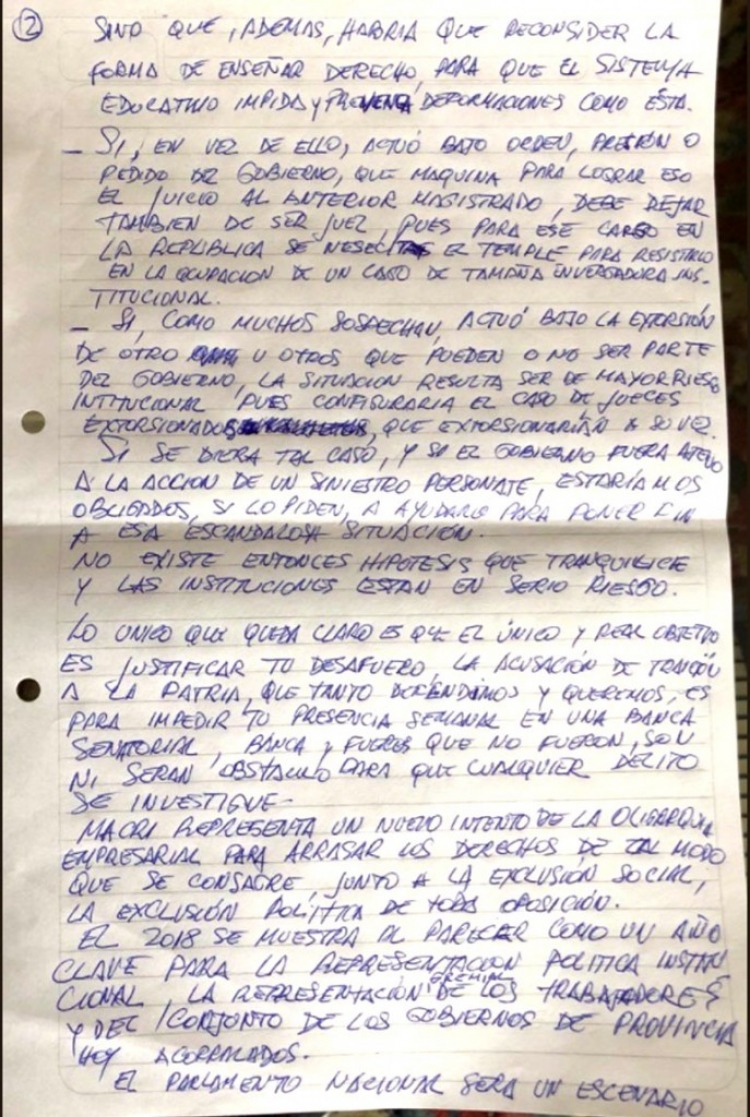 ②
SINO QUE, ADEMAS, HABRIA QUE RECONSIDER LA
FORMA DE ENSEÑAR DERECHO, PARA QUE EL SISTEMA
EDUCATIVO IMPIDA y PREVENGA DEFORMACIONES COMO ÉSTA.
- SI, EN VEZ DE ELLO, ACTUÓ BAJO ORDEN, PRESIÓN O
PEDIDO DEL GOBIERNO, QUE MAQUINA PARA LOGRAR ESO
EL JUICIO AL ANTERIOR MAGISTRADO, DEBE DEJAR
TAMBIEN DE SER JUEZ, PUES PARA ESE CARGO EN
LA REPUBLICA SE NESECITA EL TEMPLE PARA RESISTIRLO
EN LA OCUPACION DE UN CASO DE TAMAÑA ENVERGADURA INS-
TITUCIONAL.
- SI, COMO MUCHOS SOSPECHAN, ACTUÓ BAJO LA EXTORSIÓN
DE OTRO U OTROS QUE PUEDEN O NO SER PARTE
DEL GOBIERNO, LA SITUACION RESULTA SER DE MAYOR RIESGO
INTITUCIONAL PUES CONFIGURARIA EL CASO DE JUECES
EXTORSIONADOS, QUE EXTORSIONARIAN A SU VEZ.
SI SE DIERA TAL CASO, Y SI EL GOBIERNO FUERA AJENO
A LA ACCION DE UN SINIESTRO PERSONAJE, ESTARÍAMOS
OBLIGADOS, SI LO PIDEN, A AYUDARLO PARA PONER FIN
A ESA ESCANDALOSA SITUACIÓN.
NO EXISTE ENTONCES HIPOTESIS QUE TRANQUILICE
Y LAS INSTITUCIONES ESTAN EN SERIO RIESGO.
LO UNICO QUE QUEDA CLARO ES QUE EL ÚNICO Y REAL OBJETIVO
ES JUSTIFICAR TU DESAFUERO. LA ACUSACIÓN DE TRAICIÓN
A LA PATRIA, QUE TANTO DEFENDIMOS Y QUEREMOS, ES
PARA IMPEDIR TU PRESENCIA SEMANAL EN UNA BANCA
SENATORIAL, BANCA y FUEROS QUE NO FUERON, SON
NI SERAN OBSTACULO PARA QUE CUALQUIER DELITO
SE INVESTIGUE-
MACRI REPRESENTA UN NUEVO INTENTO DE LA OLIGARQUIA
EMPRESARIAL PARA ARRASAR LOS DERECHOS DE TAL MODO
QUE SE CONSAGRE, JUNTO A LA EXCLUSIÓN SOCIAL,
LA EXCLUSIÓN POLÍTICA DE TODA OPOSICIÓN.
EL 2018 SE MUESTRA AL PARECER COMO UN AÑO
CLAVE PARA LA REPRESENTACION POLITICA INSTITU
CIONAL, LA REPRESENTACIÓN GREMIAL DE LOS TRABAJADORES
Y DEL CONJUNTO DE LOS GOBIERNOS DE PROVINCIA
HOY ACORRALADOS.
EL PARLAMENTO NACIONAL SERA UN ESCENARIO